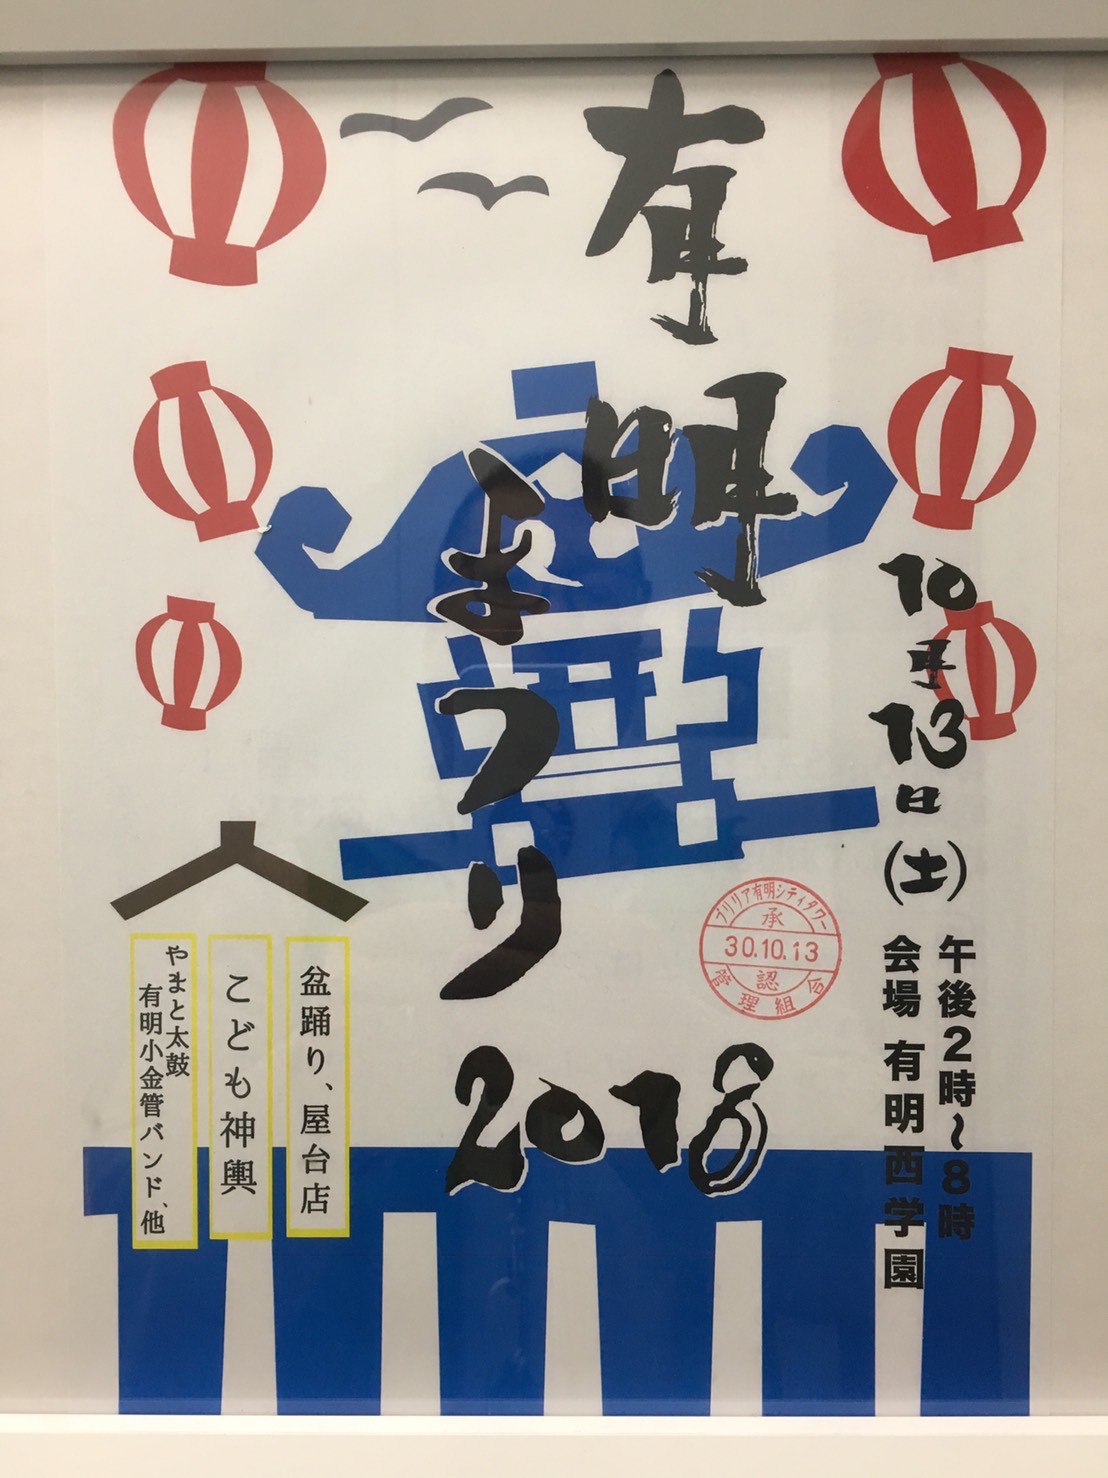 有明
まつり
2018
10月13日(土)
午後2時~8時
会場 有明西学園
盆踊り、屋台店
こども神輿
やまと太鼓
有明小金管バンド、他
ブリリア有明シティタワー
承
30.10.13
認
管理組合